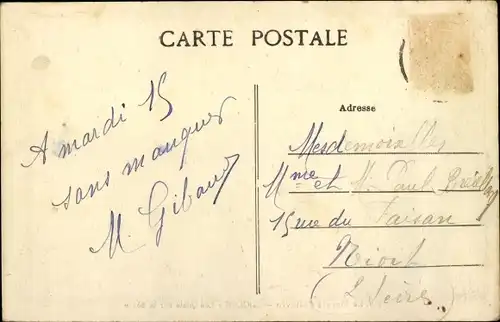 CARTE POSTALE
Adresse
A mardi 15
sans manquer
M. Gibaud
Mesdemoiselles
Mme et M. Paul
15 rue du Faisan
Niort
(2 Sèvres)